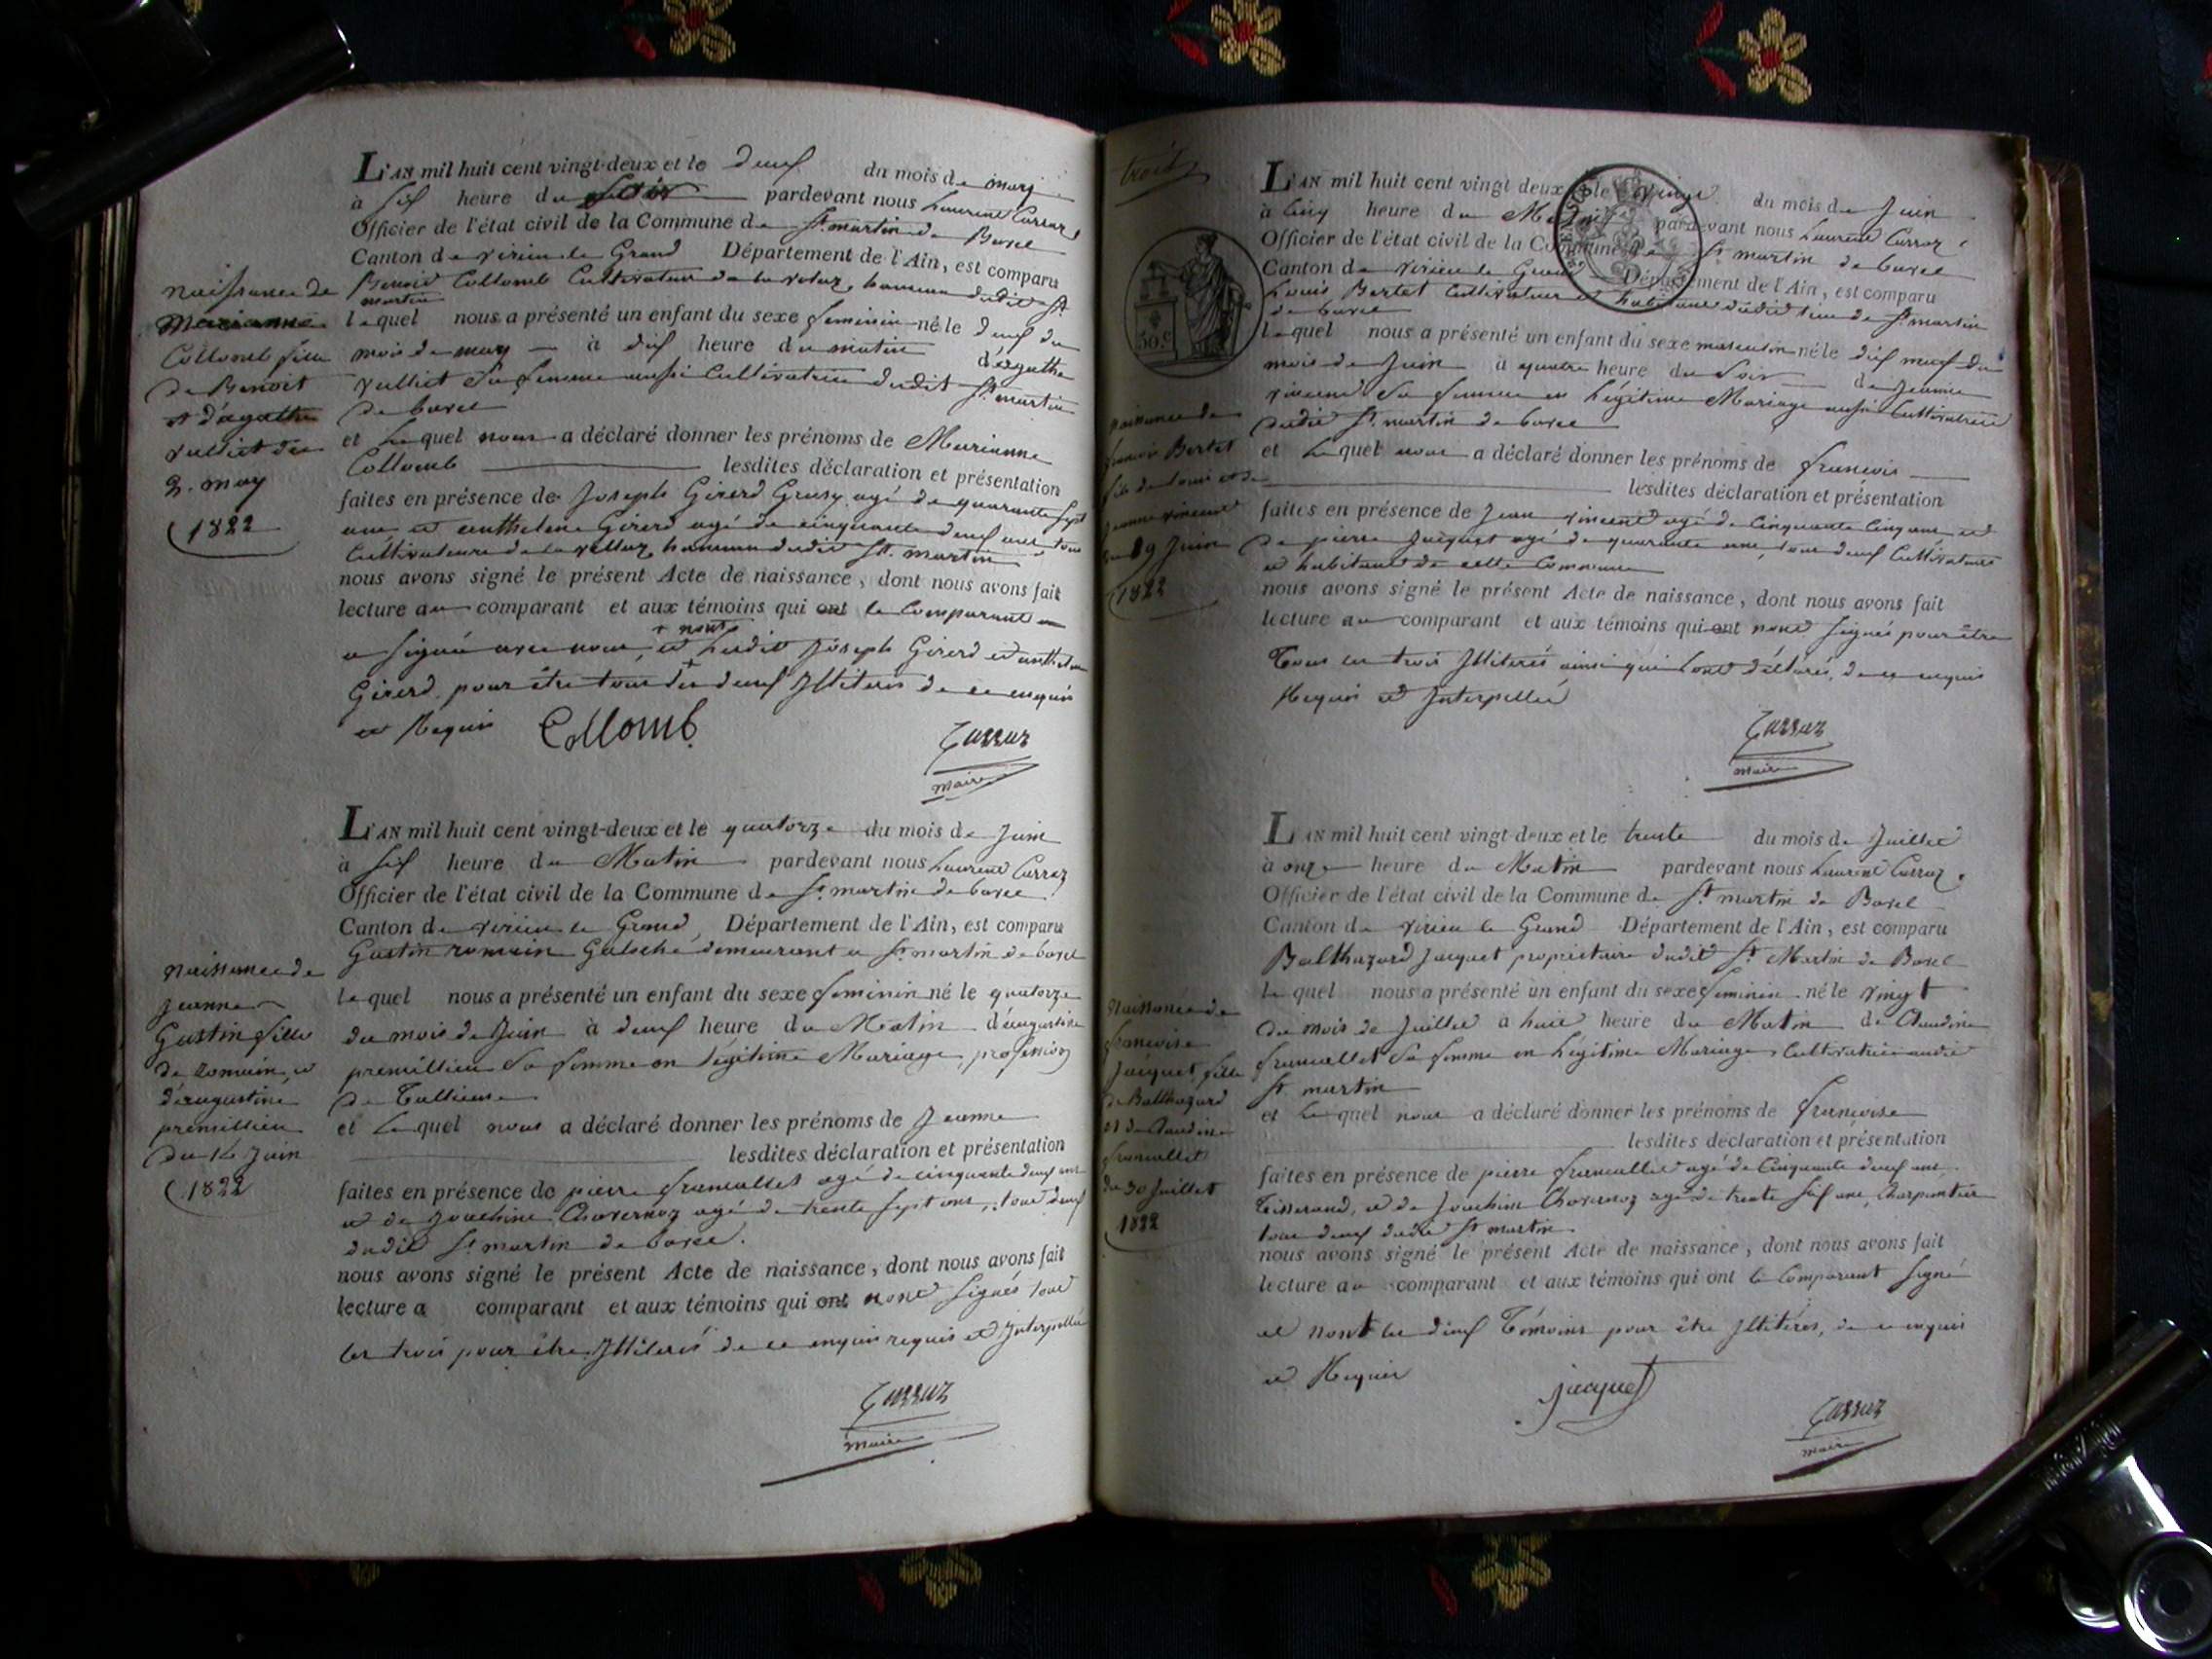 L'AN mil huit cent vingt-deux et le deux du mois de may
à six heure du soir pardevant nous Laurent Carraz,
Officier de l'état civil de la Commune de St. martin de Bavel
Canton de virieu le Grand Département de l'Ain, est comparu
Benoit Collomb Cultivateur de la vellaz, hameau dudit St.
martin
lequel nous a présenté un enfant du sexe feminin né le deux du
mois de may à dix heure du matin d'agathe
vulliet sa femme aussi Cultivatrice dudit St. martin
de bavel
et lequel nous a déclaré donner les prénoms de Marianne
Collomb lesdites déclaration et présentation
faites en présence de Joseph Girerd Grusy agé de quarante sept
ans et anthelme Girerd agé de cinquante deux ans tous
Cultivateurs de la vellaz, hameau dudit St. martin
nous avons signé le présent Acte de naissance, dont nous avons fait
lecture au comparant et aux témoins qui ont le Comparant
a signé avec nous, et ledit Joseph Girerd et anthelme
+ nont
Girerd pour être tous les deux Illiteres de ce enquis
et Requis Collomb
Carraz
maire
naissance de
Marianne
Collomb fille
de Benoit
et d'agathe
vulliet du
2. may
1822
L'AN mil huit cent vingt-deux et le quatorze du mois de Juin
à six heure du Matin pardevant nous Laurent Carraz
Officier de l'état civil de la Commune de St. martin de bavel
Canton de virieu le Grand, Département de l'Ain, est comparu
Gustin romain Galoche demeurant a St. martin de bavel
lequel nous a présenté un enfant du sexe feminin né le quatorze
du mois de Juin à deux heure du Matin d'augustine
premillieu sa femme en légitime Mariage, profession
de Tallieuse
et lequel nous a déclaré donner les prénoms de Jeanne
lesdites déclaration et présentation
faites en présence de pierre francallet agé de cinquante deux ans
et de Joachim Chavernoz agé de trente sept ans, tous deux
dudit St. martin de bavel.
nous avons signé le présent Acte de naissance, dont nous avons fait
lecture a comparant et aux témoins qui ont nont signés tous
les trois pour être Illiterés de ce enquis requis et Interpellés
Carraz
maire
naissance de
Jeanne
Gustin fille
de romain et
d'augustine
premillieu
du 14 Juin
1822
trois
L'AN mil huit cent vingt deux et le vingt du mois de Juin
à cinq heure du Matin pardevant nous Laurent Carraz,
Officier de l'état civil de la Commune de St martin de bavel
Canton de virieu le Grand Département de l'Ain, est comparu
Louis Bertet Cultivateur et habitant dudit lieu de St. martin
de bavel
lequel nous a présenté un enfant du sexe masculin né le dix neuf du
mois de Juin à quatre heure du Soir de Jeanne
vincent sa femme en légitime Mariage aussi Cultivatrice
dudit St. martin de bavel
et lequel nous a déclaré donner les prénoms de francois
lesdites déclaration et présentation
faites en présence de Jean vincent agé de Cinquante Cinq ans et
de pierre Jacquet agé de quarante ans, tous deux Cultivateurs
et habitants de cette Commune
nous avons signé le présent Acte de naissance, dont nous avons fait
lecture au comparant et aux témoins qui ont nont signés pour être
Tous les trois Illiterés ainsi qui l'ont déclarés, de ce enquis
Requis et Interpellés
Carraz
maire
50.c
naissance de
francois Bertet
fils de Louis et de
Jeanne vincent
du 19 Juin
1822
L'AN mil huit cent vingt-deux et le trente du mois de Juillet
à onze heure du Matin pardevant nous Laurent Carraz,
Officier de l'état civil de la Commune de St martin de Bavel
Canton de virieu le Grand Département de l'Ain, est comparu
Balthazard Jacquet propriétaire dudit St. Martin de Bavel
lequel nous a présenté un enfant du sexe feminin né le vingt
du mois de Juillet a huit heure du Matin de Claudine
francallet sa femme en légitime Mariage, Cultivatrice audit
St martin
et lequel nous a déclaré donner les prénoms de francoise
lesdites déclaration et présentation
faites en présence de pierre francallet agé de Cinquante deux ans,
Tisserand, et de Joachim Chavernoz agé de trente six ans, Charpentier
tous deux dudit St martin
nous avons signé le présent Acte de naissance, dont nous avons fait
lecture au comparant et aux témoins qui ont le Comparant signé
et nont les deux Témoins pour être Illitérés, de ce enquis
et Requis
Jacquet
Carraz
maire
Naissance de
francoise
Jacquet, fille
de Balthazard
et de Claudine
francallet
du 30 Juillet
1822